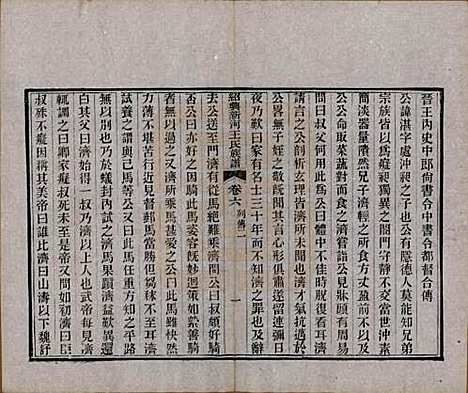 晉王內史中郎尚書令中書令都督合傳
公諱湛字處沖昶之子也少有隱德人莫能知兄弟
宗族皆以為癡昶獨異之闔門守靜不交當世沖素
簡淡器量隤然兄子濟輕之所食方丈盈前不以及
公公命取菜蔬對而食之濟嘗詣公見牀頭有周易
問曰叔父何用此為公曰體中不佳時脫復看耳濟
請言之公剖析玄理皆濟所未聞也濟才氣抗邁於
公畧無子姪之敬既聞其言心形俱肅遂留連彌日
夜乃歎曰家有名士三十年而不知濟之罪也及辭
紹興新河王氏族譜 卷六 列傳一 一
去公送至門濟有從馬絕難乘濟問公曰叔頗好騎
否公曰亦好之因騎此馬姿容既妙迴策如縈善騎
者無以過之又濟所乘馬甚愛之公曰此馬雖快然
力薄不堪苦行近見督郵馬當勝但芻秣不至耳濟
試養之而與己馬等公又曰此馬任重方知之平路
無以別也於是當蟻封內試之濟馬果躓濟益歎異
白其父曰濟始得一叔乃濟以上人也武帝每見濟
輒調之曰卿家癡叔死未至是又問濟對曰臣
叔殊不癡因稱其美帝曰誰比濟曰山濤以下魏舒